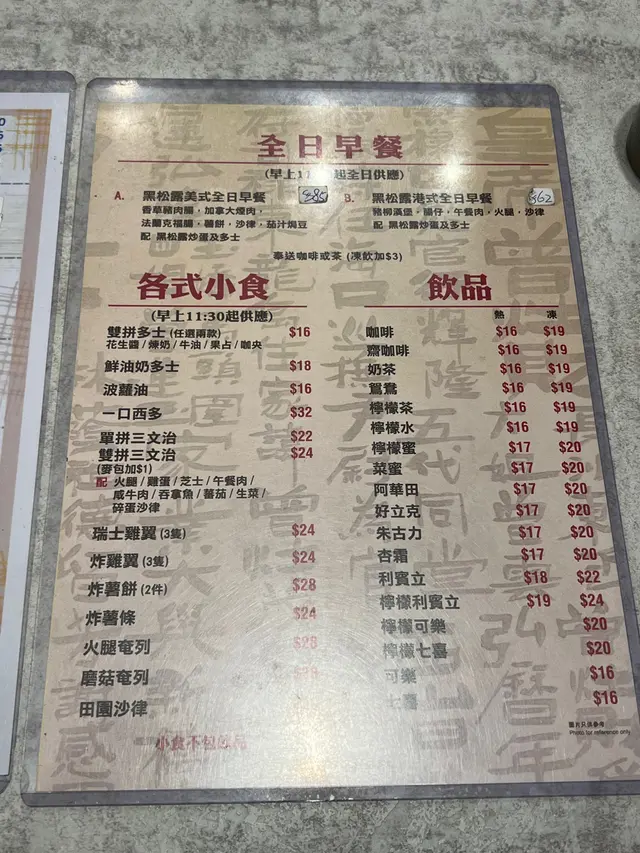 全日早餐
(早上11 起全日供應)
A. 黑松露美式全日早餐 $85
香草豬肉腸，加拿大煙肉，
法蘭克福腸，薯餅，沙律，茄汁焗豆
配 黑松露炒蛋及多士
B. 黑松露港式全日早餐 $62
豬柳漢堡，腸仔，午餐肉，火腿，沙律
配 黑松露炒蛋及多士
奉送咖啡或茶 (凍飲加$3)
各式小食
(早上11:30起供應)
雙拼多士 (任選兩款) $16
花生醬 / 煉奶 / 牛油 / 果占 / 咖央
鮮油奶多士 $18
波蘿油 $16
一口西多 $32
單拼三文治 $22
雙拼三文治 $24
(麥包加$1)
配 火腿 / 雞蛋 / 芝士 / 午餐肉 /
咸牛肉 / 吞拿魚 / 蕃茄 / 生菜 /
碎蛋沙律
瑞士雞翼 (3隻) $24
炸雞翼 (3隻) $24
炸薯餅 (2件) $28
炸薯條 $24
火腿奄列 $28
磨菇奄列
田園沙律
小食不包飲品
飲品
熱 凍
咖啡 $16 $19
齋咖啡 $16 $19
奶茶 $16 $19
鴛鴦 $16 $19
檸檬茶 $16 $19
檸檬水 $16 $19
檸檬蜜 $17 $20
菜蜜 $17 $20
阿華田 $17 $20
好立克 $17 $20
朱古力 $17 $20
杏霜 $17 $20
利賓立 $18 $22
檸檬利賓立 $19 $24
檸檬可樂 $20
檸檬七喜 $20
可樂 $16
七喜 $16
圖片只供參考
Photo for reference only